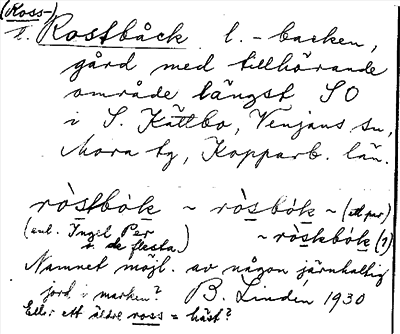 (Ross-)
I. Rostbåck l. -backen,
gård med tillhörande
område längst SO
i S. Kättbo, Venjans sn,
Mora tg, Kopparb. län.
ròstbók ~ ròsbók ~ (ett par)
(enl. Ingel Per ~ ròskbók (?)
o. de flesta)
Namnet möjl. av någon järnhaltig
jord i marken? B. Lindén, 1930
Ell.: ett äldre ross = häst?